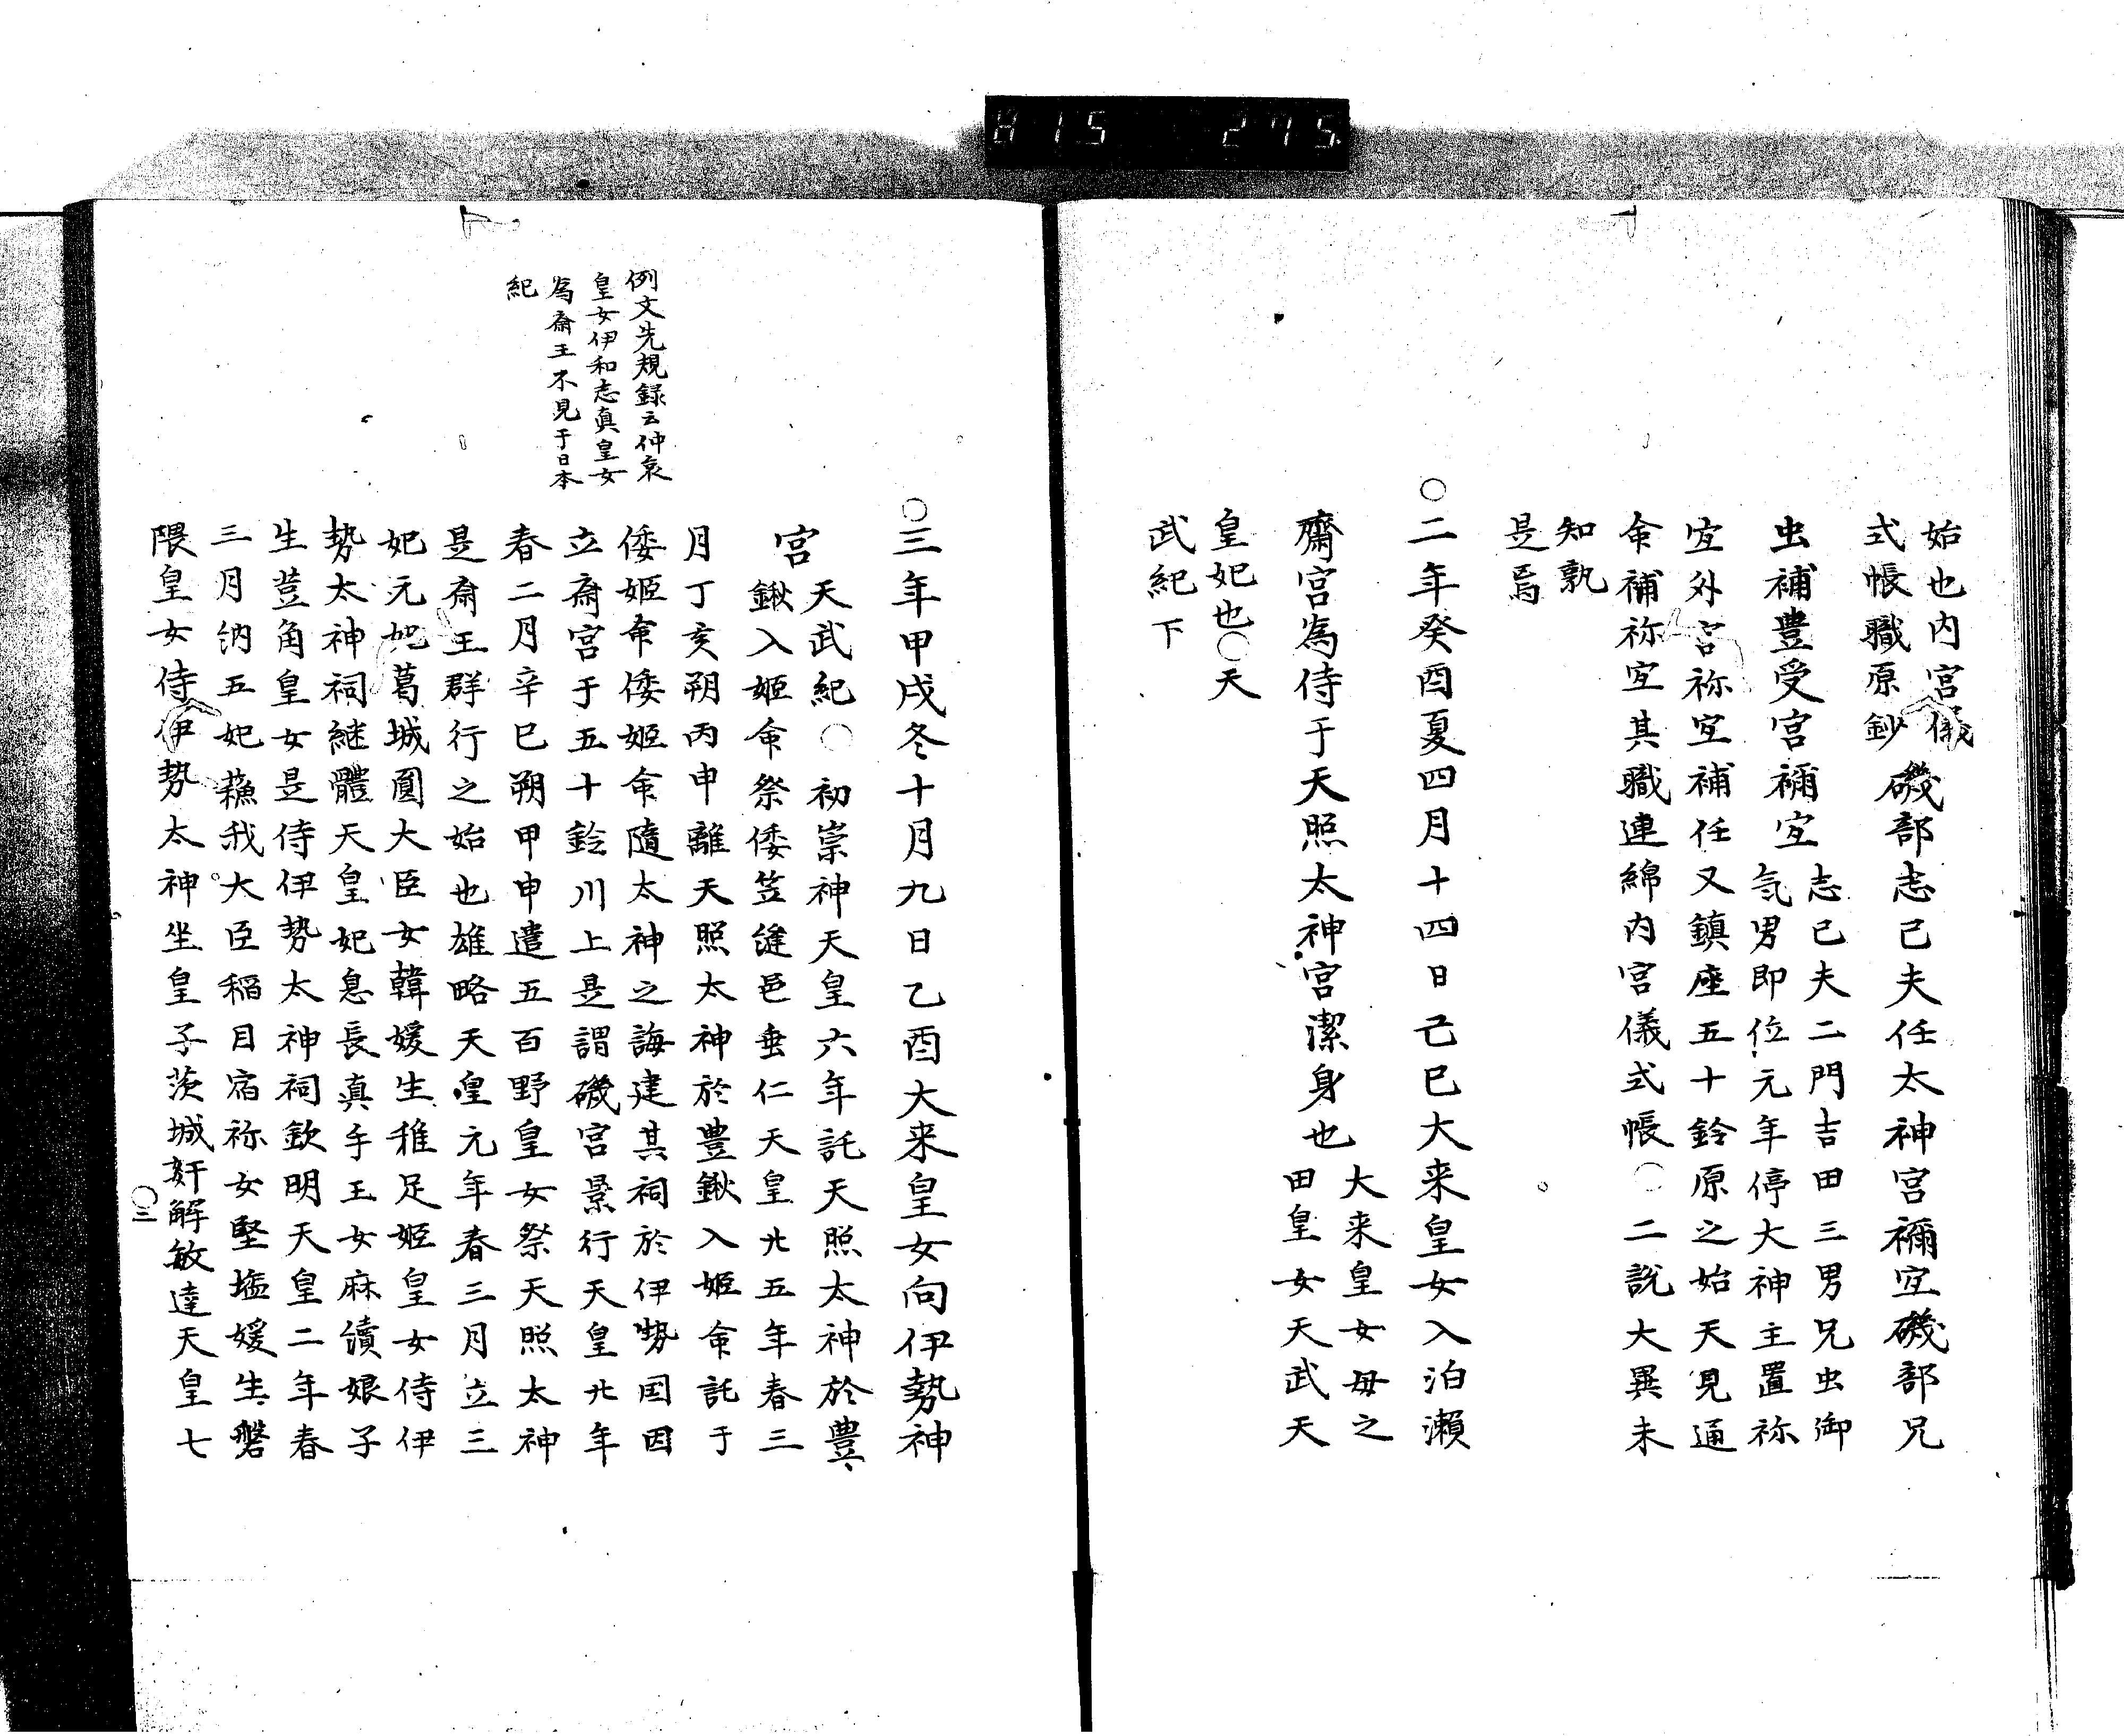 H15 275
始也内宮儀
式帳職原鈔
磯部志己夫任太神宮禰宜磯部兄
虫補豊受宮禰宜
志己夫二門吉田三男兄虫御
気男即位元年停大神主置祢
宜外宮祢宜補任又鎮座五十鈴原之始天見通
命補祢宜其職連綿内宮儀式帳○二説大異未
知孰
是焉
○二年癸酉夏四月十四日己巳大来皇女入泊瀬
齋宮為侍于天照太神宮潔身也
大来皇女母之
田皇女天武天
皇妃也○天
武紀下
例文先規録云仲哀
皇女伊和志真皇女
為齋王不見于日本
紀
○三年甲戌冬十月九日乙酉大来皇女向伊勢神
宮
天武紀○初崇神天皇六年託天照太神於豊
鍬入姫命祭倭笠縫邑垂仁天皇廿五年春三
月丁亥朔丙申離天照太神於豊鍬入姫命託于
倭姫命倭姫命隨太神之誨建其祠於伊勢国因
立齋宮于五十鈴川上是謂磯宮景行天皇廿年
春二月辛巳朔甲申遣五百野皇女祭天照太神
是齋王群行之始也雄略天皇元年春三月立三
妃元妃葛城圓大臣女韓媛生稚足姫皇女侍伊
勢太神祠継體天皇妃息長真手王女麻績娘子
生荳角皇女是侍伊勢太神祠欽明天皇二年春
三月納五妃蘓我大臣稲目宿祢女堅塩媛生磐
隈皇女侍伊勢太神坐皇子茨城奸解敏達天皇七
○二